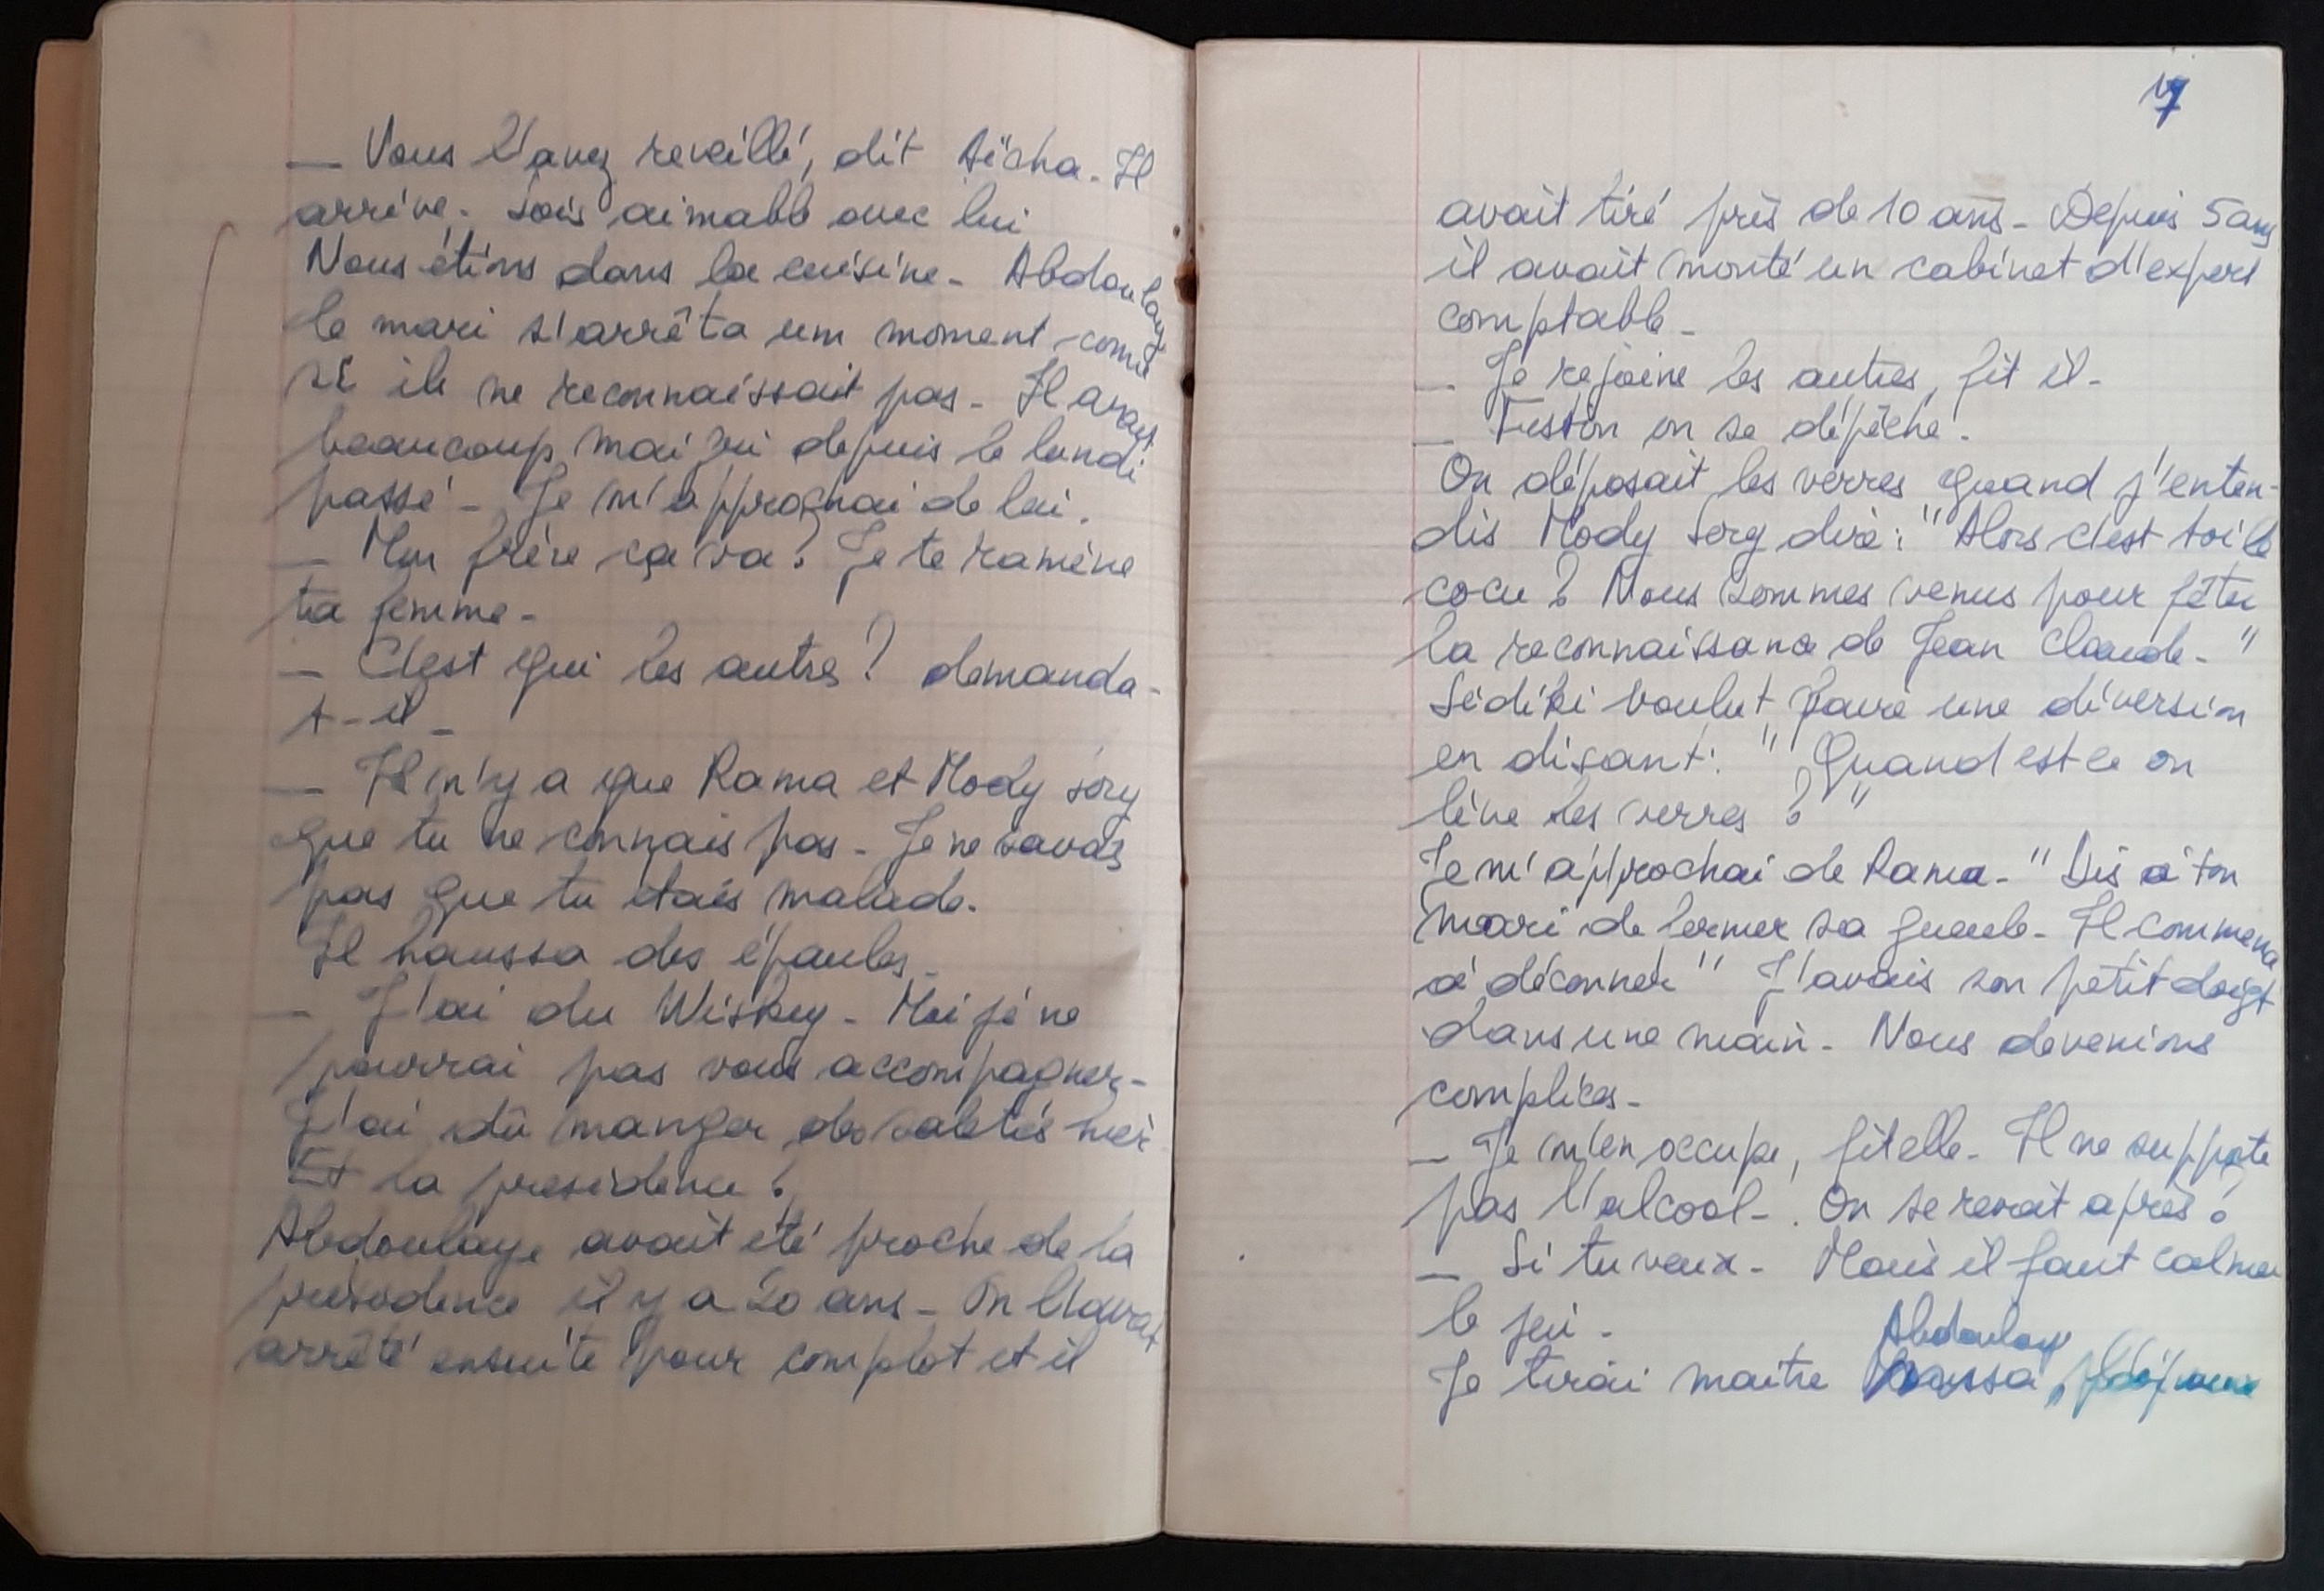 — Vous l'avez reveillé, dit Aïcha - Il
arrive. Sois aimable avec lui
Nous étions dans la cuisine - Abdoulaye
le mari s'arrêta un moment comme
si il ne reconnaissait pas - Il avait
beaucoup maigri depuis le lundi
passé - Je m'approchai de lui.
— Mon frère ça va ? Je te ramène
ta femme -
— C'est qui les autres ? demanda-
t-il -
— Il n'y a que Rama et Mody Sory
que tu ne connais pas - Je ne savais
pas que tu étais malade.
Il haussa des épaules -
— J'ai du Wiskey - Moi je ne
pourrai pas vous accompagner -
J'ai dû manger des saletés hier
Et la presidence ?
Abdoulaye avait été proche de la
présidence il y a 20 ans - On l'avait
arrêté ensuite pour complot et il
17
avait tiré près de 10 ans - Depuis 5 ans
il avait monté un cabinet d'expert
comptable -
— Je rejoins les autres, fit il -
— on se dépêche.
On déposait les verres quand j'enten-
dis Mody Sory dire : "Alors c'est toi le
cocu ? Nous sommes venus pour fêter
la reconnaissance de Jean Claude - "
Sidiki voulut faire une diversion
en disant : " Quand est ce on
lève les verres ? "
Je m'approchai de Rama - " Dis à ton
mari de fermer sa gueule - Il commence
à déconner " J'avais son petit doigt
dans une main - Nous devenions
complices -
— Je m'en occupe, fit elle - Il ne supporte
pas l'alcool - . On se revoit après ?
— Si tu veux - Mais il faut calmer
le jeu -
Abdoulaye
Je tirai maitre